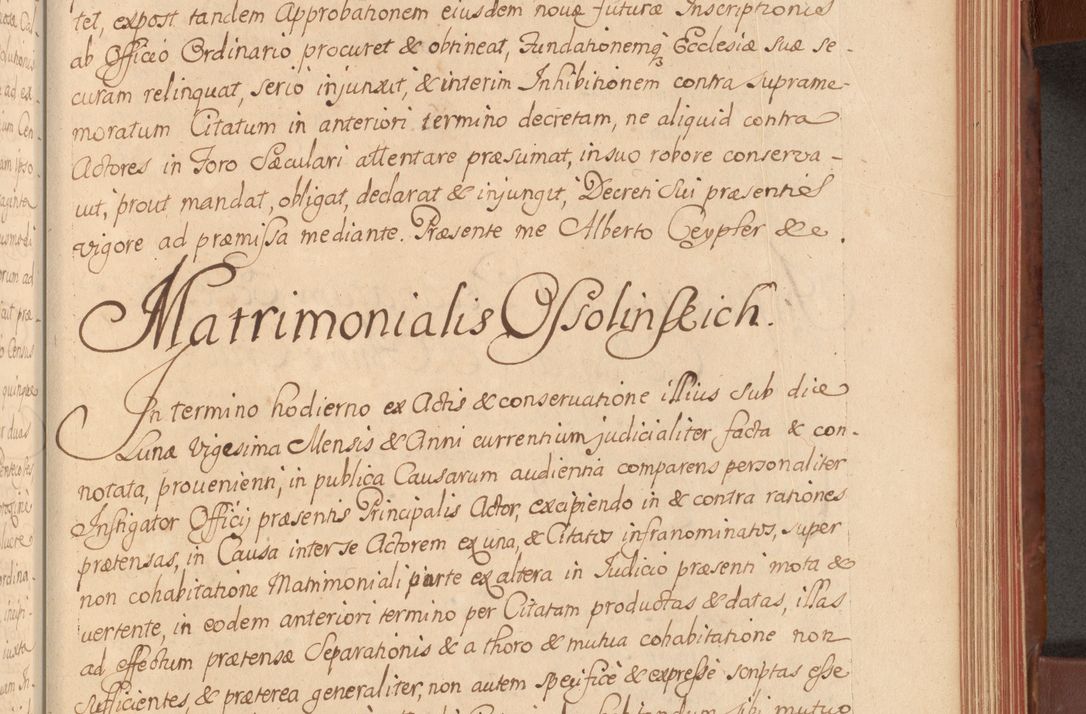 tet, expost tandem Approbationem eiusdem novæ futuræ Inscriptionis
ab Officio Ordinario procuret & obtineat, Fundationemq3 Ecclesiæ suæ se-
curam relinquat, serio injunxit, & interim Inhibitionem contra suprame-
moratum Citatum in anteriori termino decretam, ne aliquid contra
Actores in Foro Sæculari attentare præsumat, in suo robore conserva-
vit, prout mandat, obligat, declarat & injungit, Decreti sui præsentis
vigore ad præmissa mediante. Præsente me Alberto Ceypler &c.
Matrimonialis Ossolinskich.
In termino hodierno ex Actis & conservatione illius sub die
Lunæ vigesima Mensis & Anni currentium judicialiter facta & con-
notata, provenienti, in publica Causarum audientia comparens personaliter
Instigator Officij præsentis Principalis Actor, excipiendo in & contra rationes
prætensas, in Causa inter se Actorem ex una, & Citatos infranominatos, super
non cohabitatione Matrimoniali parte ex altera in Iudicio præsenti mota &
vertente, in eodem anteriori termino per Citatam productas & datas, illas
ad effectum prætensæ Separationis & a thoro & mutua cohabitatione non
sufficientes, & præterea generaliter, non autem specificè & expressè scriptas esse
mutuo